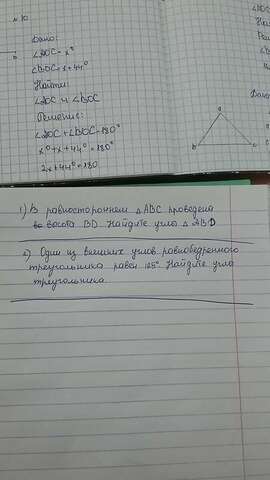 №10
Дано:
∠AOC = x°
∠BOC = x+44°
Найти:
∠AOC и ∠BOC
Решение:
∠AOC + ∠BOC = 180°
x° + x + 44° = 180°
2x + 44° = 180
∠BOC
Найти
Реш
∠AOC
B
A
C
1) В равностороннем △ABC проведена
во высота BD. Найдите углы △ ABD
2) Один из внешних углов равнобедренного
треугольника равен 125°. Найдите угла
треугольника.